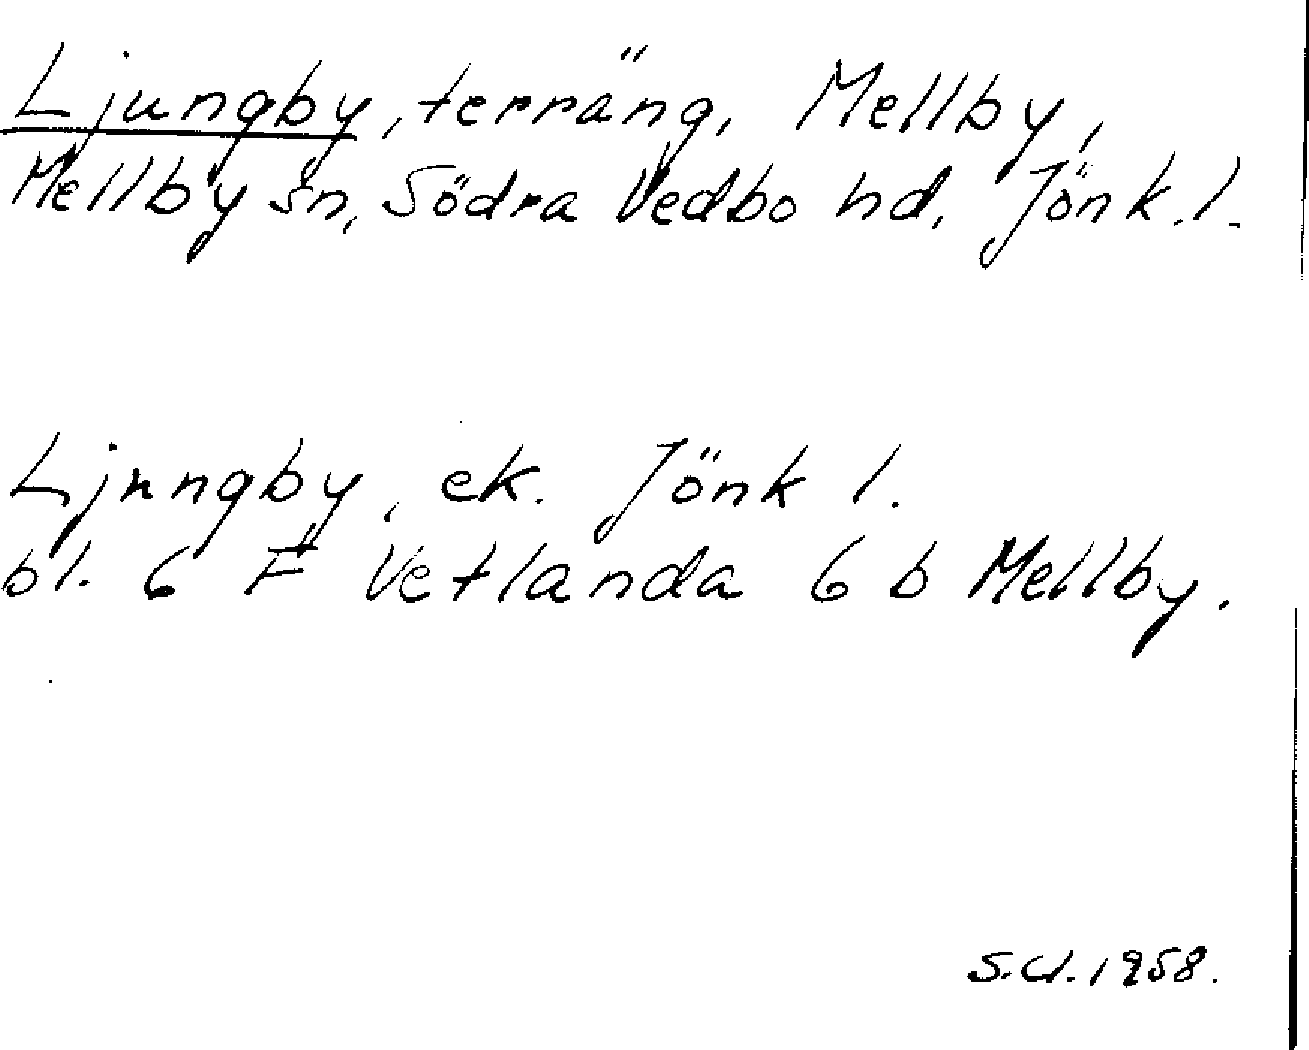 Ljungby, terräng, Mellby,
Mellby sn, Södra Vedbo hd, Jönk. l.
Ljungby, ek. Jönk l.
bl. 6 F Vetlanda 6 b Mellby.
1958.